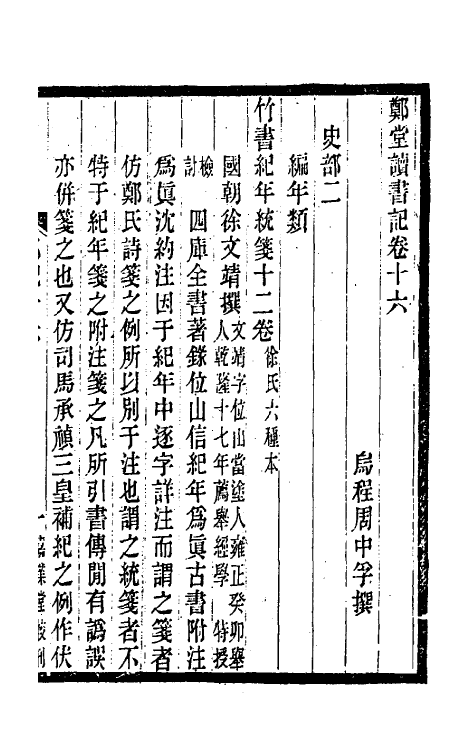 鄭堂讀書記卷十六
烏程周中孚撰
史部二
編年類
竹書紀年統箋十二卷徐氏六種本
國朝徐文靖撰文靖字位山當塗人雍正癸卯舉人乾隆十七年薦舉經學特授
檢討四庫全書著錄位山信紀年爲眞古書附注
爲眞沈約注因于紀年中逐字詳注而謂之箋者
仿鄭氏詩箋之例所以別于注也謂之統箋者不
特于紀年箋之附注箋之凡所引書傳閒有譌誤
亦併箋之也又仿司馬承禎三皇補紀之例作伏